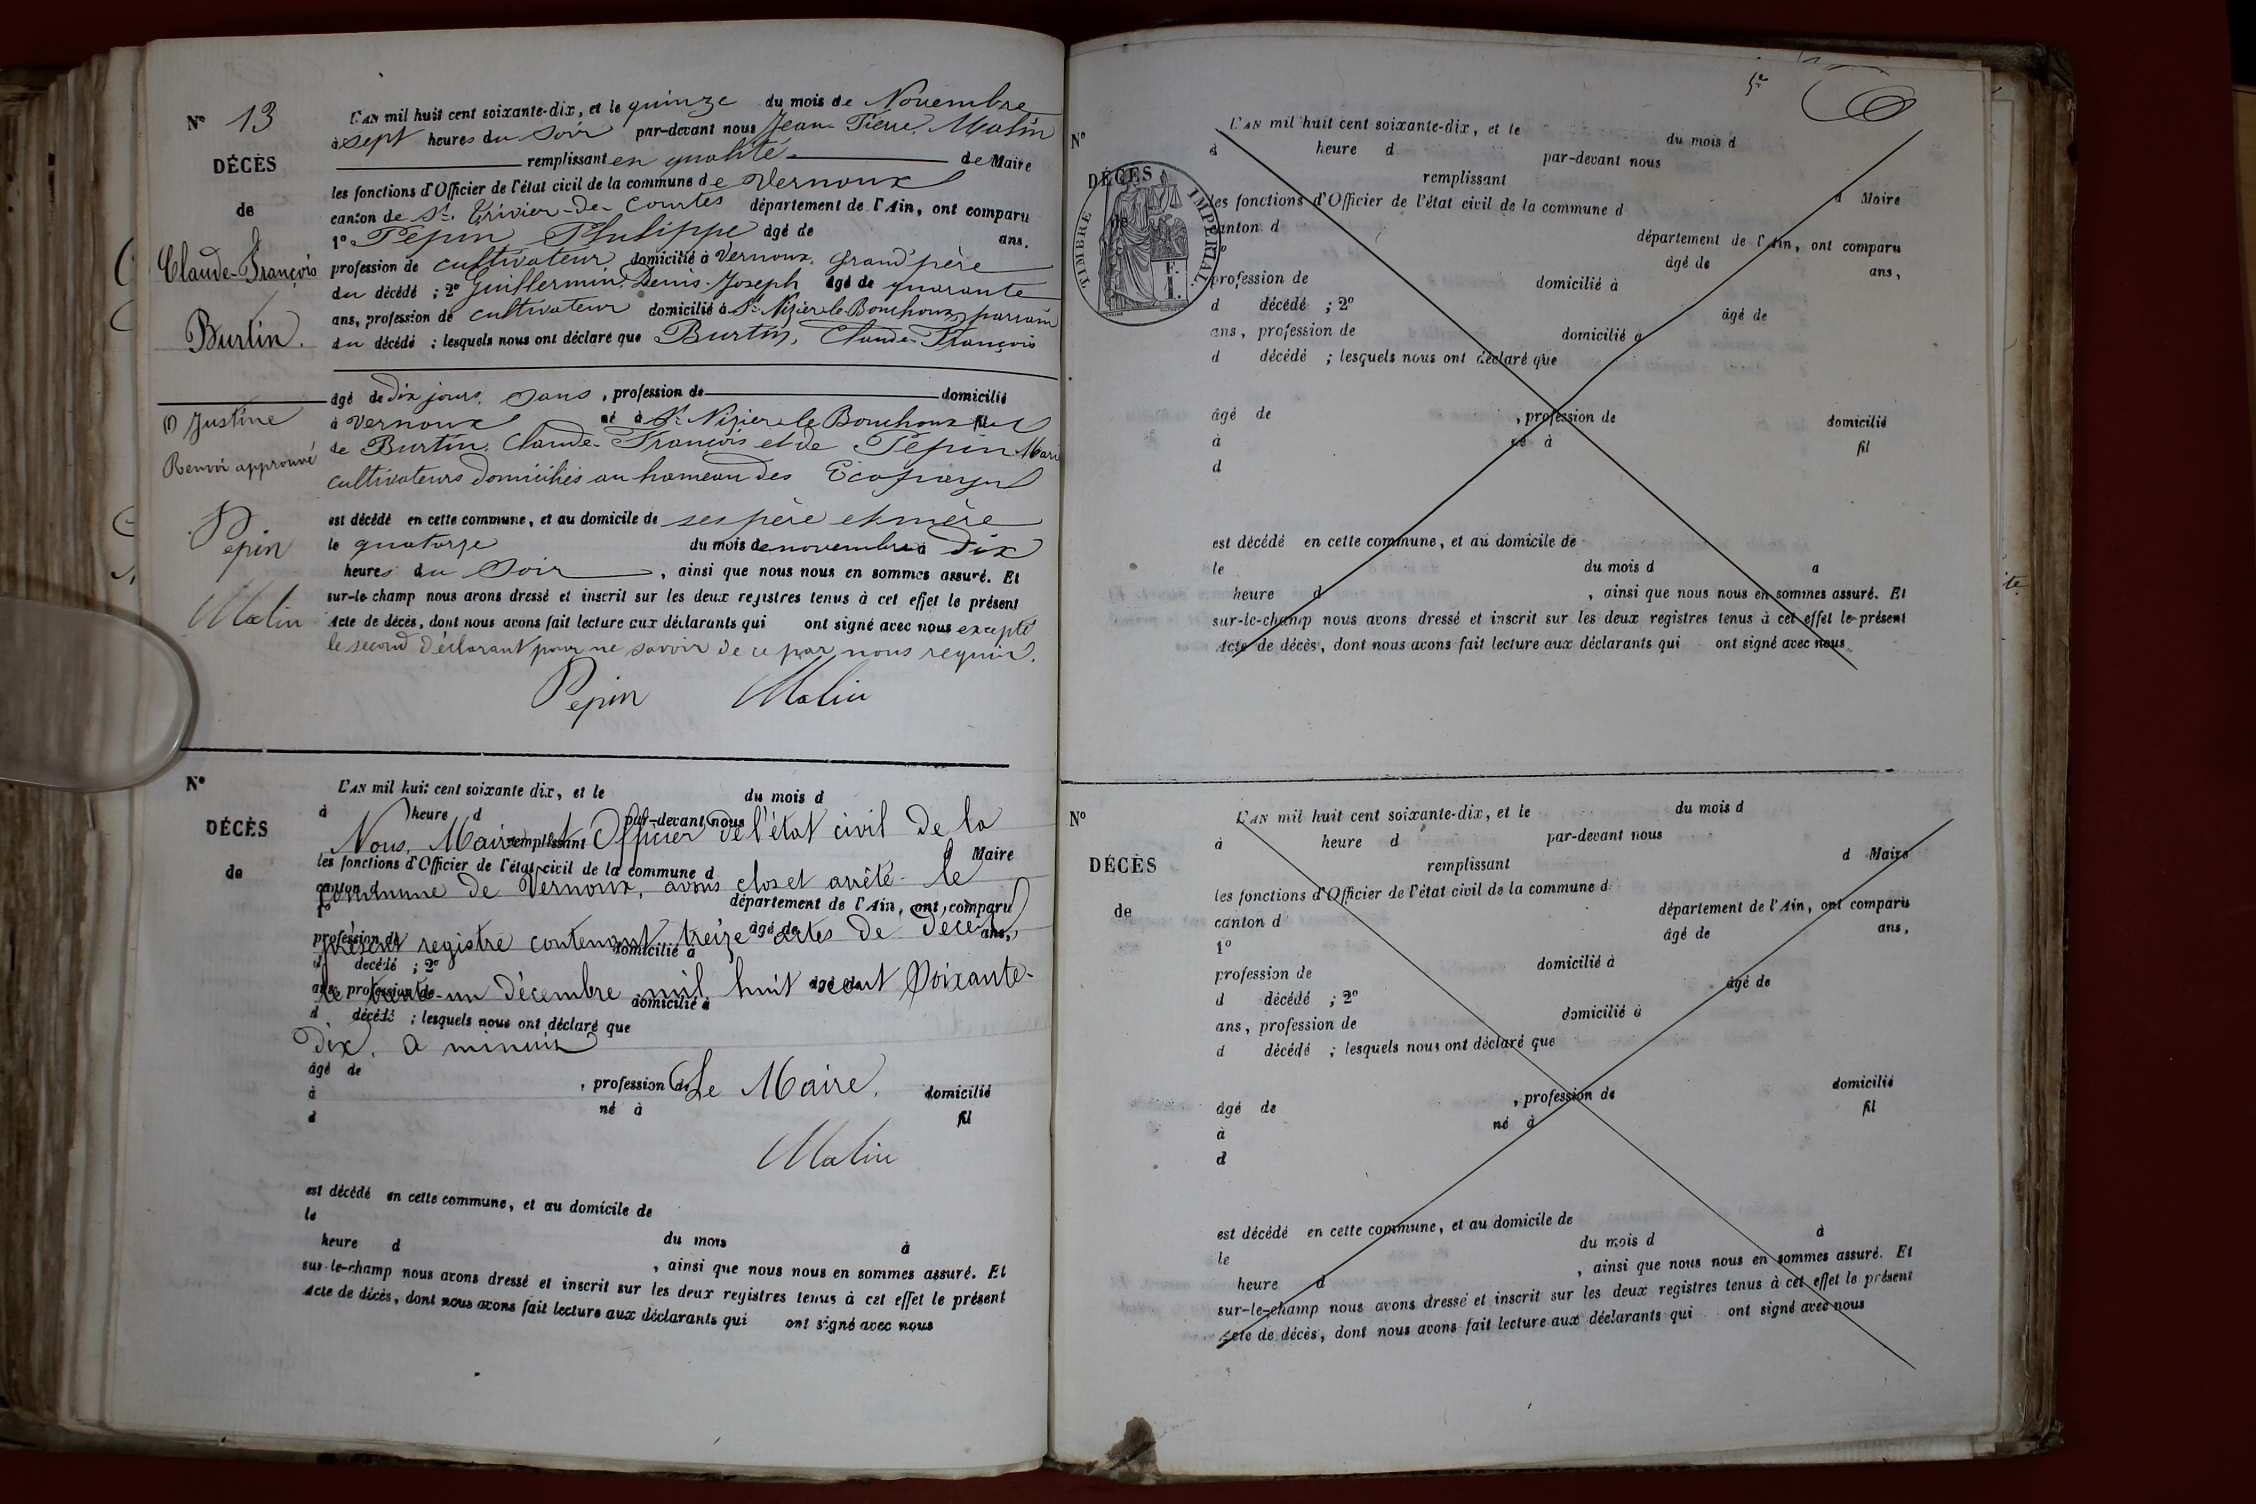 N° 13
DÉCÈS
de
Claude-François
Burtin.
(1) Justine
Renvoi approuvé
Pepin
Malin
L'AN mil huit cent soixante-dix, et le quinze du mois de Novembre
à sept heures du Soir par-devant nous Jean Pierre Malin
remplissant en qualité de Maire
les fonctions d'Officier de l'état civil de la commune de Vernoux
canton de St. Trivier-de-Courtes département de l'Ain, ont comparu
1° Pepin Philippe âgé de ans,
profession de cultivateur domicilié à Vernoux, Grand'père
du décédé ; 2° Guillermin, Denis-Joseph âgé de quarante
ans, profession de cultivateur domicilié à St. Nizier-le-Bouchoux, parrain
du décédé ; lesquels nous ont déclaré que Burtin, Claude-François
âgé de dix jours, sans , profession de domicilié
à Vernoux né à St. Nizier-le-Bouchoux fils
de Burtin, Claude-François et de Pepin Marie
cultivateurs domiciliés au hameau des
est décédé en cette commune, et au domicile de ses père et mère
le quatorze du mois de novembre à Dix
heures du Soir , ainsi que nous nous en sommes assuré. Et
sur-le-champ nous avons dressé et inscrit sur les deux registres tenus à cet effet le présent
Acte de décès, dont nous avons fait lecture aux déclarants qui ont signé avec nous excepté
le second déclarant pour ne savoir de ce par nous requis.
Pepin Malin
N°
DÉCÈS
de
L'AN mil huit cent soixante dix, et le du mois d
à heure d par-devant nous
Nous, Maire et Officier de l'état civil de la
remplissant d Maire
les fonctions d'Officier de l'état civil de la commune d
commune de Vernoux, avons clos et arrêté le
canton d département de l'Ain, ont comparu
1° âgé de ans,
présent registre contenant treize actes de Décès
profession de domicilié à
d décédé ; 2° âgé de
le trente-un décembre mil huit cent Soixante-
ans, profession de domicilié à
d décédé ; lesquels nous ont déclaré que
Dix, à minuit
âgé de , profession de domicilié
Le Maire,
à né à fil
d
Malin
est décédé en cette commune, et au domicile de
le du mois à
heure d , ainsi que nous nous en sommes assuré. Et
sur-le-champ nous avons dressé et inscrit sur les deux registres tenus à cet effet le présent
Acte de décès, dont nous avons fait lecture aux déclarants qui ont signé avec nous
N°
DÉCÈS
de
TIMBRE IMPÉRIAL
F. 1.
L'AN mil huit cent soixante-dix, et le du mois d
à heure d par-devant nous
remplissant d Maire
les fonctions d'Officier de l'état civil de la commune d
canton d département de l'Ain, ont comparu
1° âgé de ans,
profession de domicilié à
d décédé ; 2° âgé de
ans, profession de domicilié à
d décédé ; lesquels nous ont déclaré que
âgé de , profession de domicilié
à né à fil
d
est décédé en cette commune, et au domicile de
le du mois d à
heure d , ainsi que nous nous en sommes assuré. Et
sur-le-champ nous avons dressé et inscrit sur les deux registres tenus à cet effet le présent
Acte de décès, dont nous avons fait lecture aux déclarants qui ont signé avec nous
N°
DÉCÈS
de
L'AN mil huit cent soixante-dix, et le du mois d
à heure d par-devant nous
remplissant d Maire
les fonctions d'Officier de l'état civil de la commune d
canton d département de l'Ain, ont comparu
1° âgé de ans,
profession de domicilié à
d décédé ; 2° âgé de
ans, profession de domicilié à
d décédé ; lesquels nous ont déclaré que
âgé de , profession de domicilié
à né à fil
d
est décédé en cette commune, et au domicile de
le du mois d à
heure d , ainsi que nous nous en sommes assuré. Et
sur-le-champ nous avons dressé et inscrit sur les deux registres tenus à cet effet le présent
Acte de décès, dont nous avons fait lecture aux déclarants qui ont signé avec nous